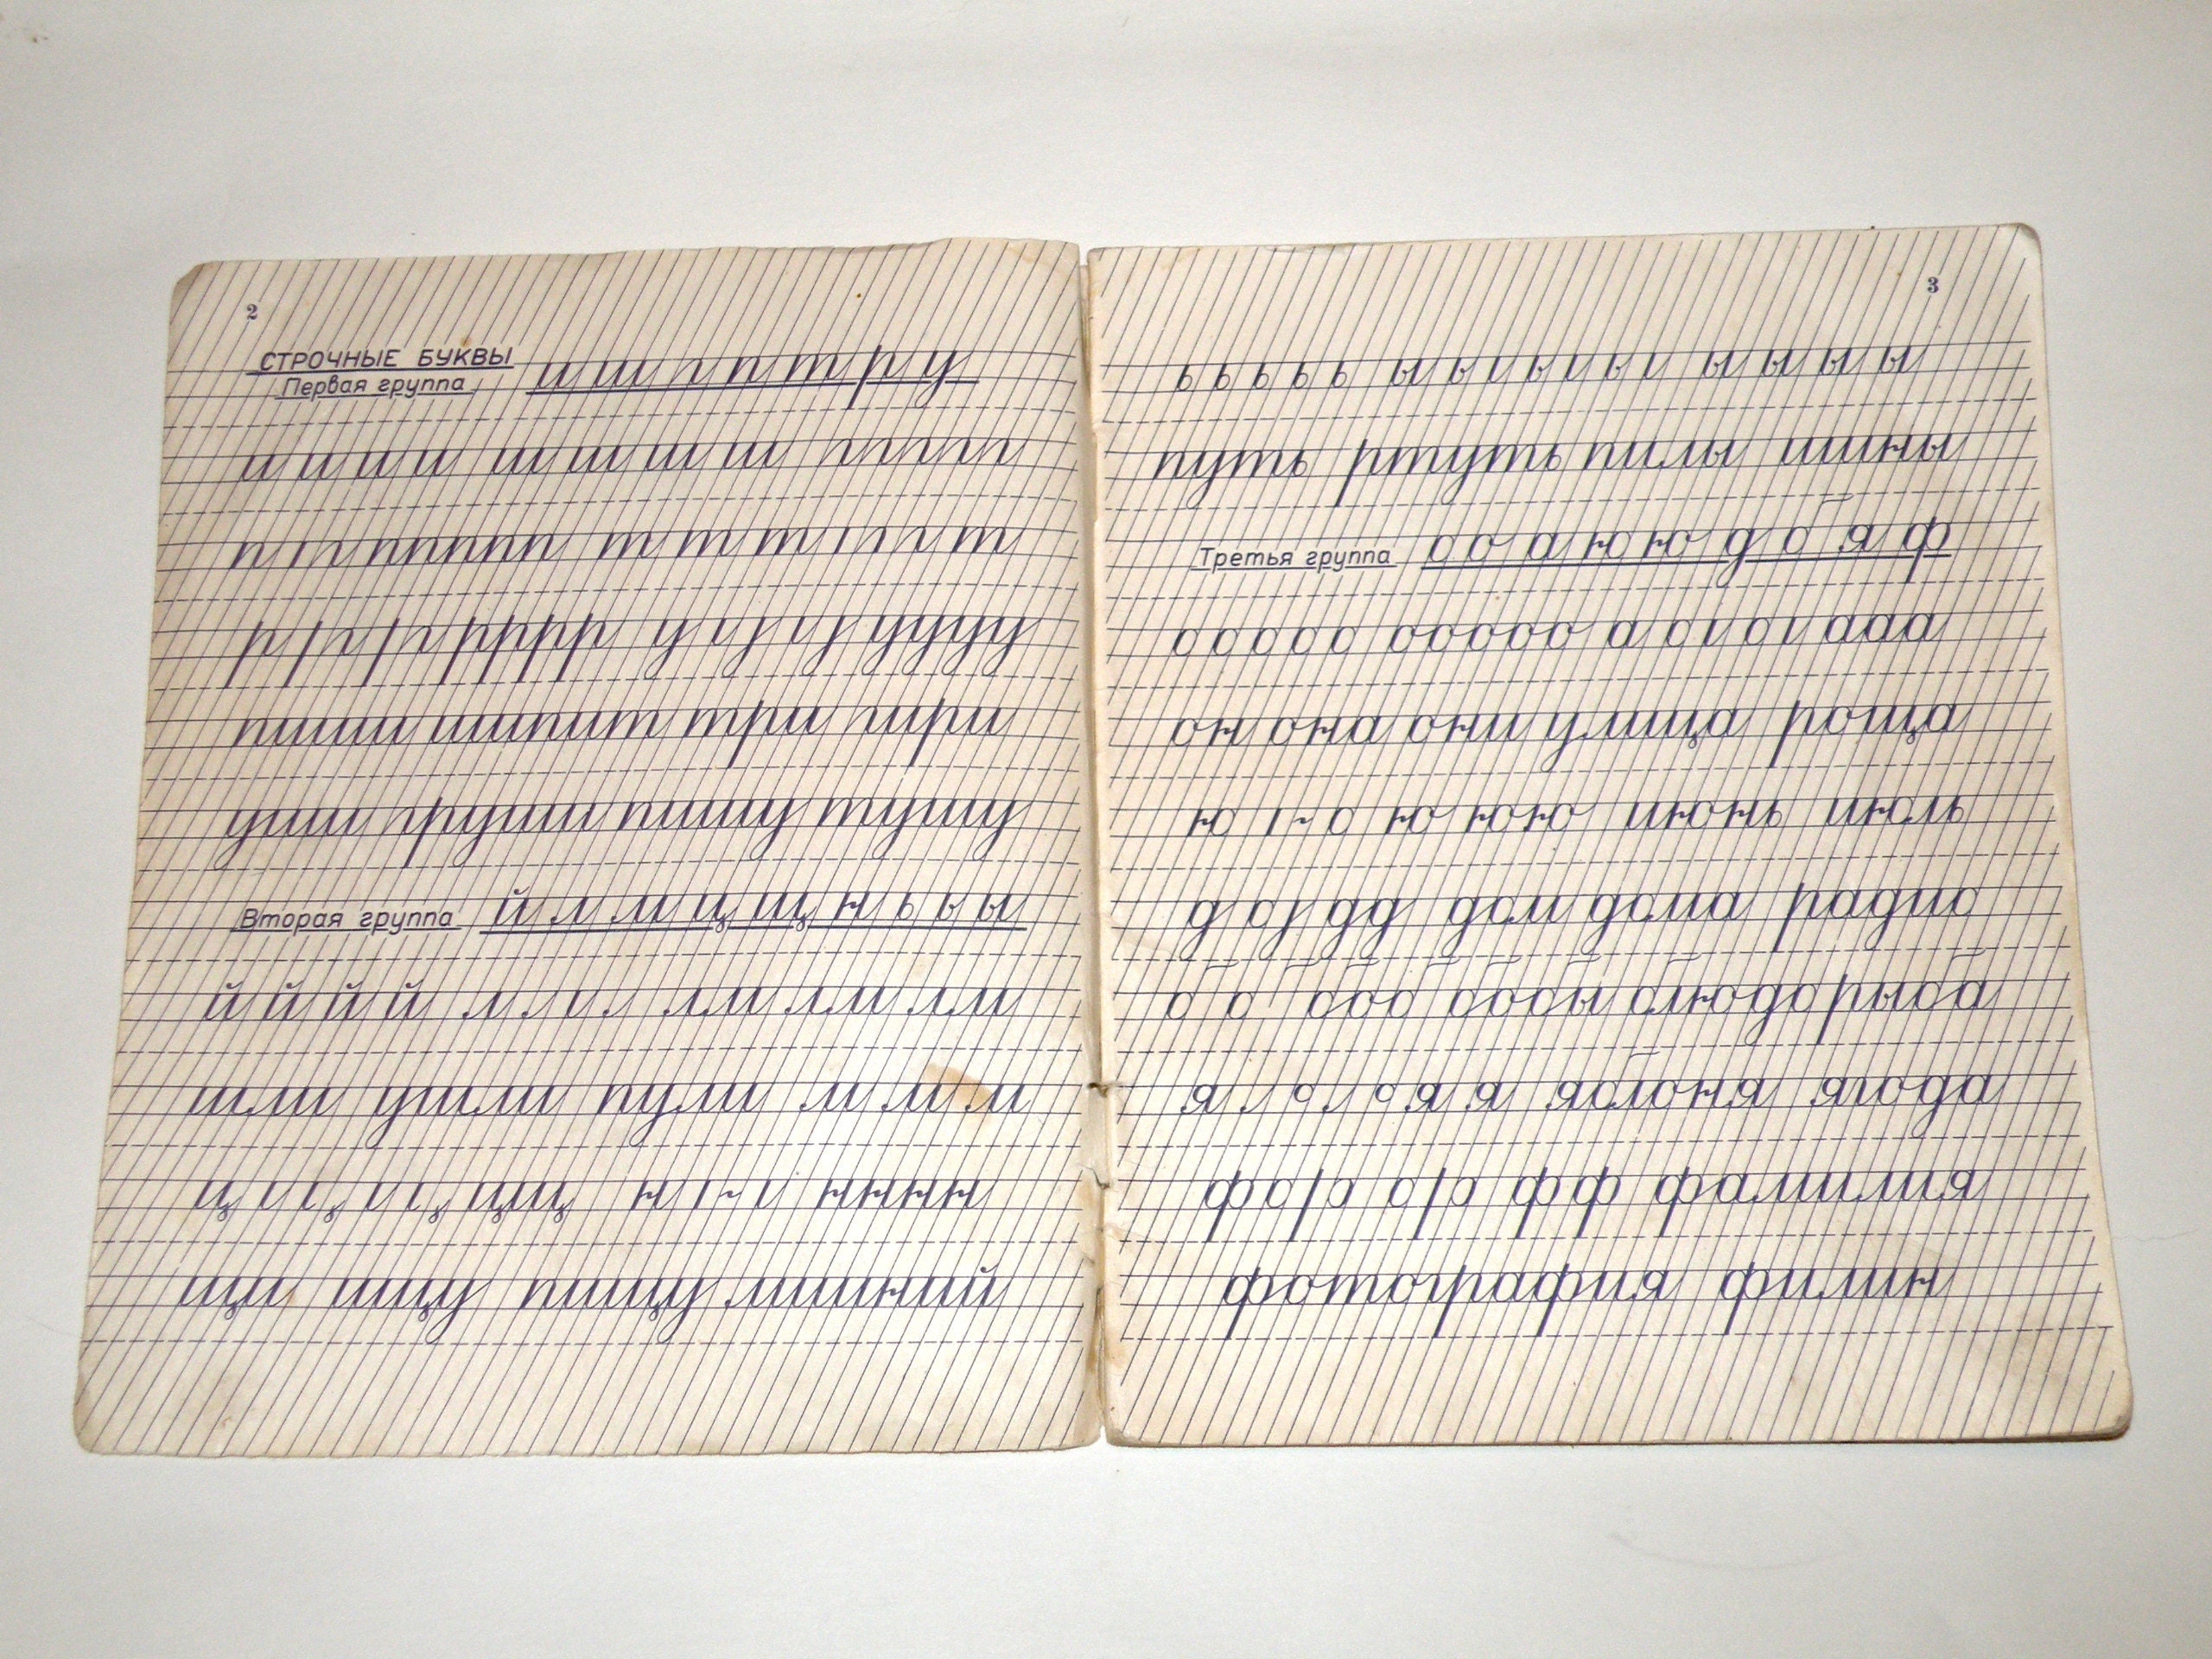 2
СТРОЧНЫЕ БУКВЫ
Первая группа и ш г п т р у
и и и и ш ш ш ш г г г г г
п ı г п п п п п т т т ı г г т
р ı г ı г р р р р у и ȷ и ȷ у у у у
пиши шипит три гири
уши груши пишу тушу
Вторая группа й л м ц щ н ь ы
й й й й л л ı л л м л м л м
шли ушли пули м м м
ц ı ı ı ı ц щ н ı ~ ı н н н н
щи ищу пищу лишний
3
ь ь ь ь ь ы ь ı ь ı ь ı ы ы ы ы
путь ртуть пилы шины
Третья группа о о а ю ю д б я ф
о о о о о о о о о о а о ı о ı а а а
он она они улица роща
ю ı ~ о ю ю ю июнь июль
д о ȷ д д дом дома радио
б б б б б бобы блюдо рыба
я л с л с я я яблоня ягода
ф с ı ɔ с ı ɔ ф ф фамилия
фотография филин